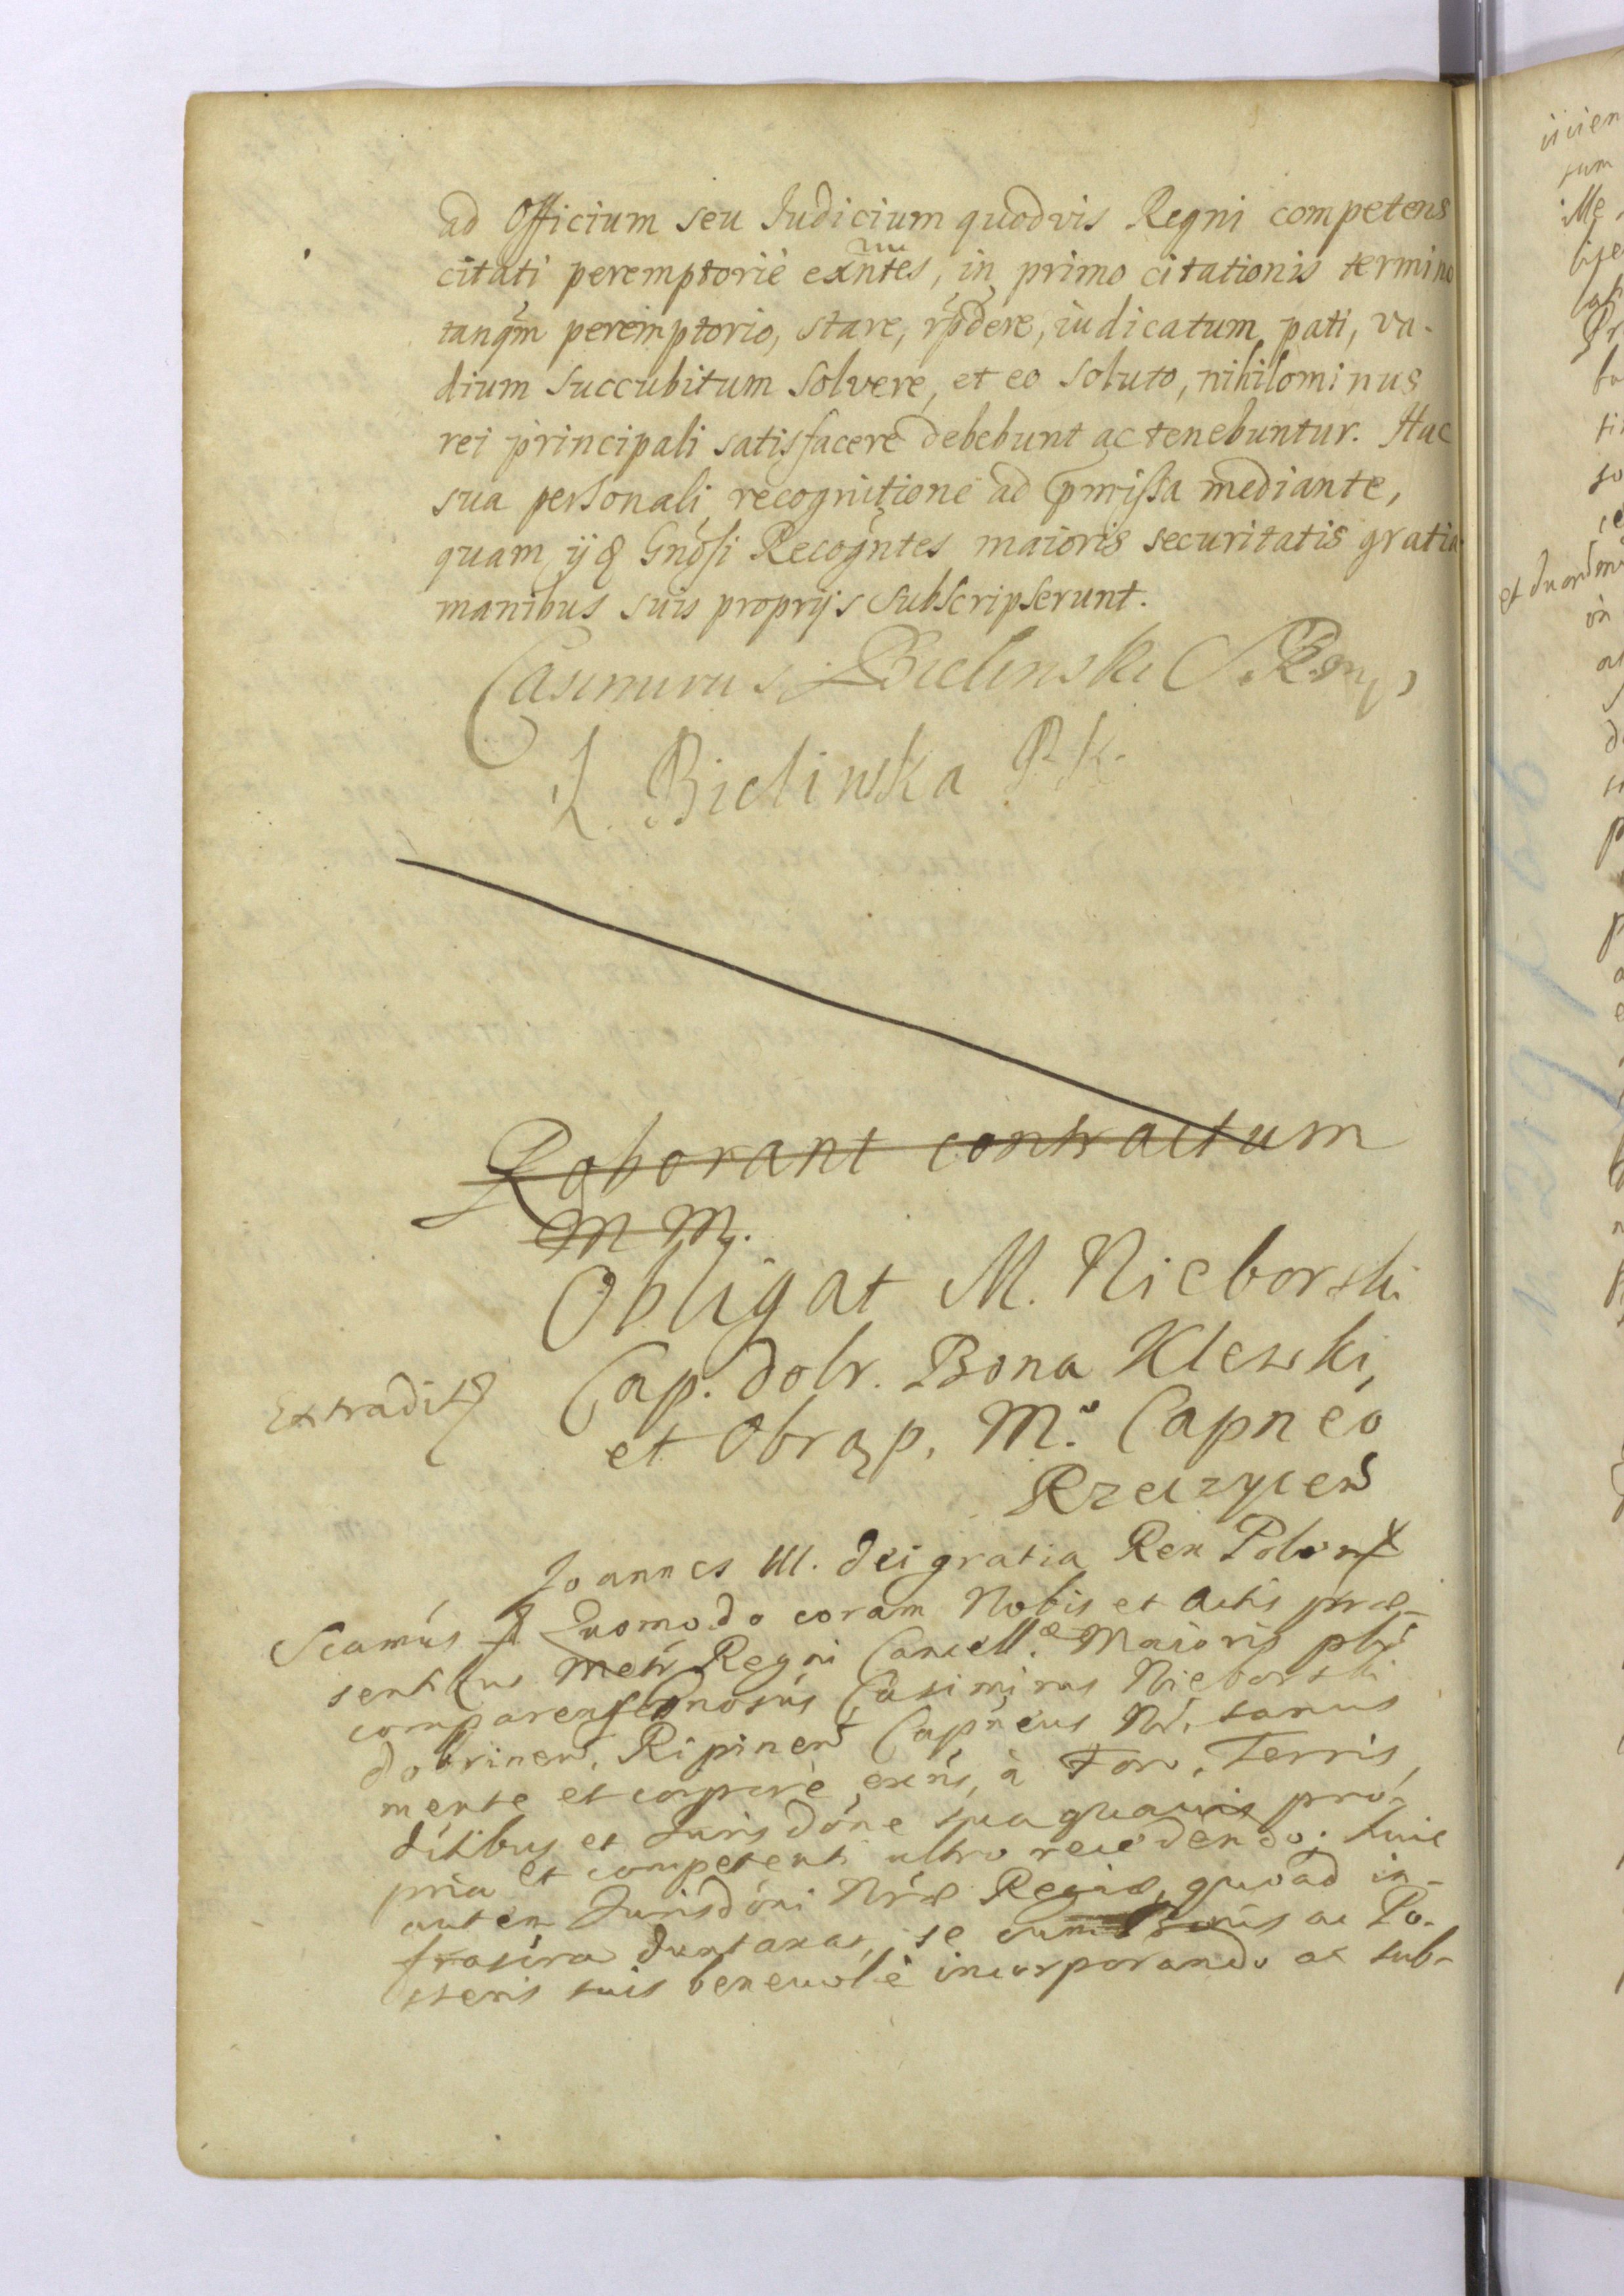 ad Officium seu Iudicium quodvis Regni competens
citati peremptoriè exñtes, in primo citationis termino
tanqm peremptorio, stare, rp̃dere, iudicatum pati, va-
dium succubitum solvere, et eo soluto, nihilominus
rei principali satisfacere debebunt ac tenebuntur. Hac
sua personali recognitione ad p̃missa mediante,
quam ijd Gñosi Recogñtes maioris securitatis gratia
manibus suis proprijs subscripserunt.
Casimirus Bielinski S. R.
L. Bielinska P. K.
Roborant contractum
M M.
Obligat M. Nieborski
Cap. dobr. Bona Klewski,
Extradit
et Obrąp. M. Capneo
Rzeczycen
Joannes III. dei gratia Rex Polon
Scamus Quomodo coram Nobis et Actis præ-
sentibus Metr Regni Cancell. Maioris plr
comparens Gnosus Casimirus Nieborski
dobrinen. Ripinen Capneus Nr. sanus
mente et corpore exns, à Foro, Terris,
ditibus et Jurisdone sua quavis pro-
pria et competenti ultro recedendo, huic
autem Jurisdoni Nræ Regiæ, quoad in-
frascra duntaxat, se cum Bonis ac Po-
steris suis benevolè incorporando ac sub-